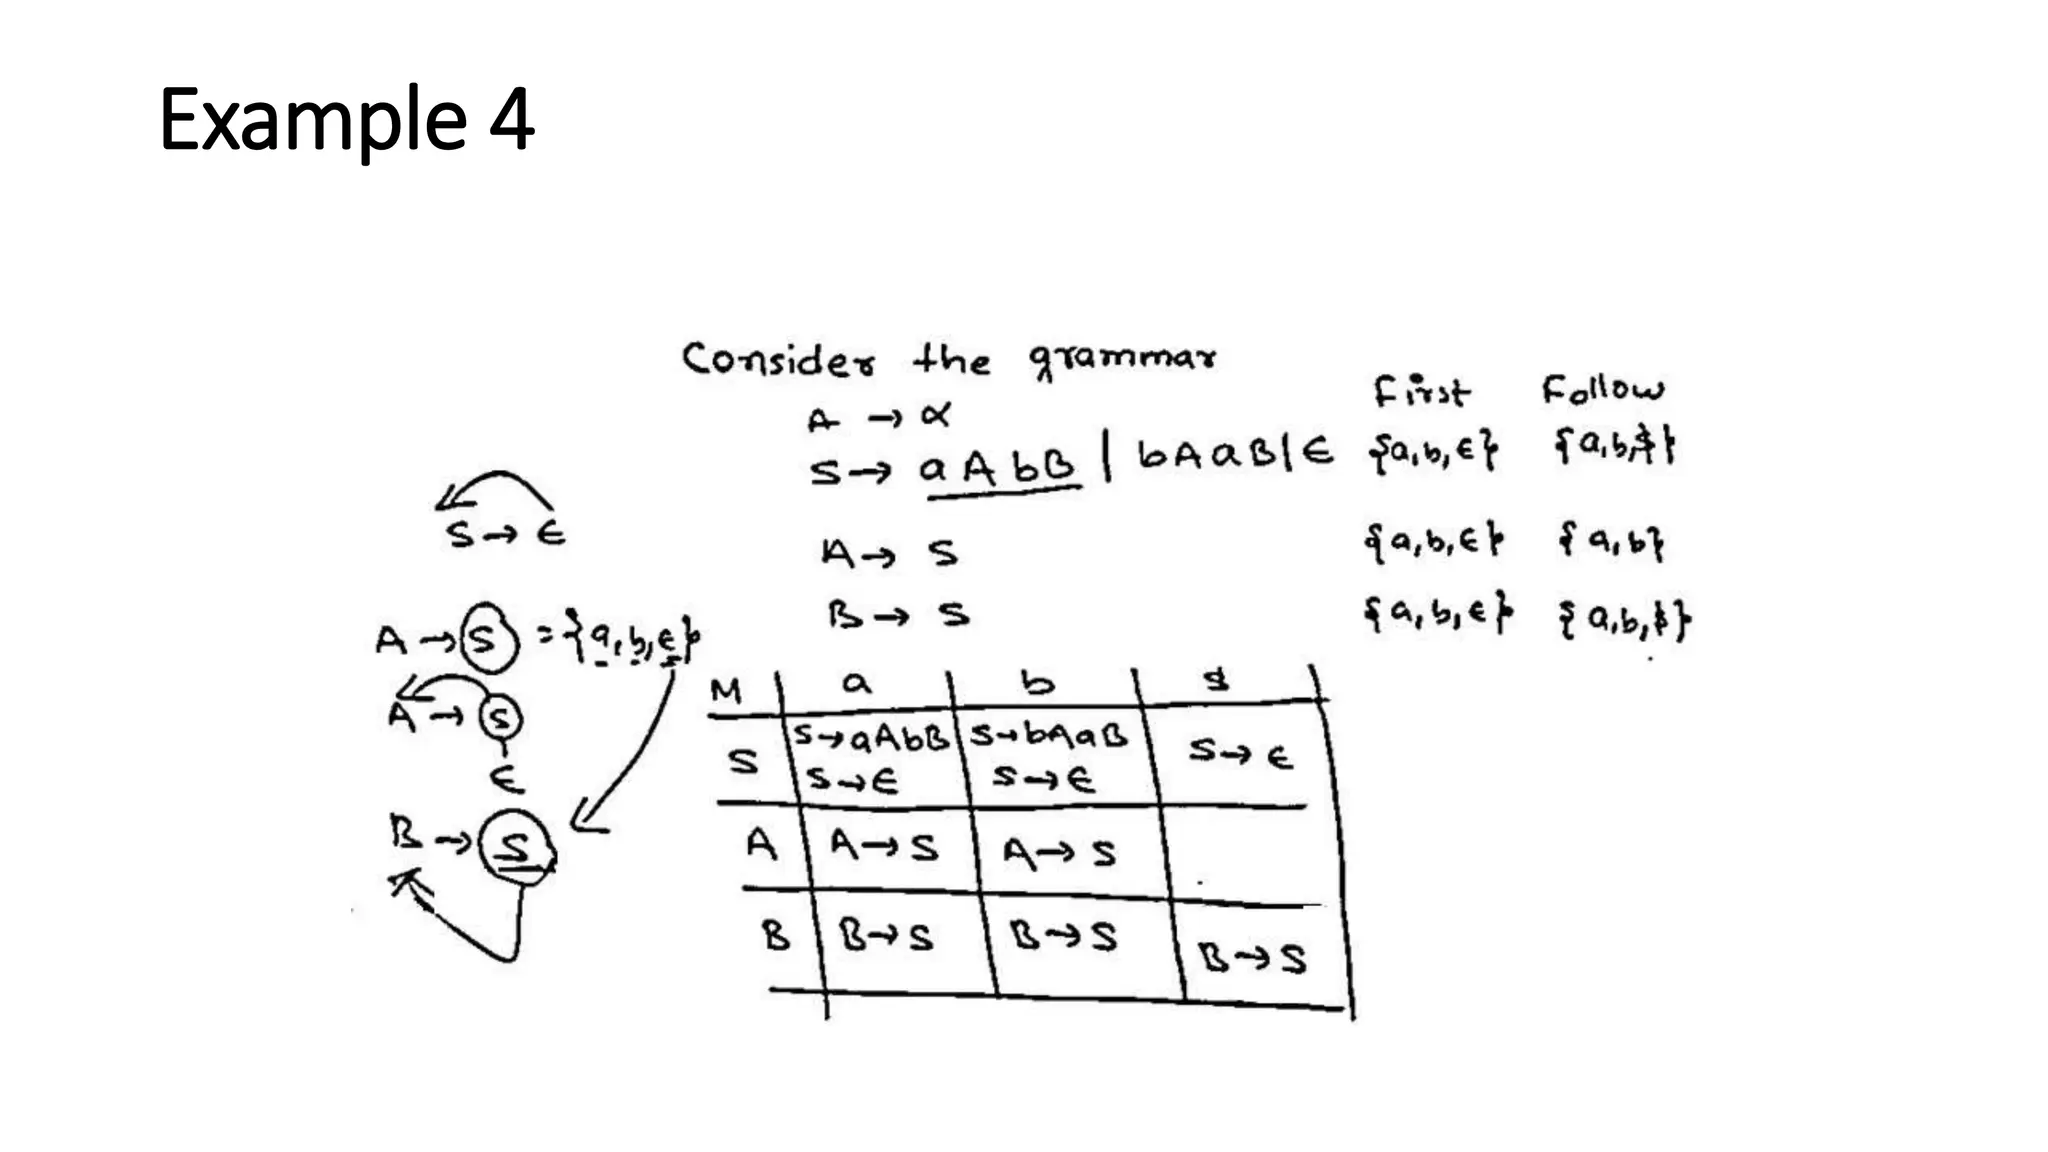 Example 4
Consider the grammar
First Follow
A → α
S → aAbB | bAaB | ϵ {a,b,ϵ} {a,b,$}
A → S {a,b,ϵ} {a,b}
B → S {a,b,ϵ} {a,b,$}
S → ϵ
A → S = {a,b,ϵ}
A → S
ϵ
B → S
M a b $
S S→aAbB S→bAaB S→ϵ
S→ϵ S→ϵ
A A→S A→S
B B→S B→S B→S